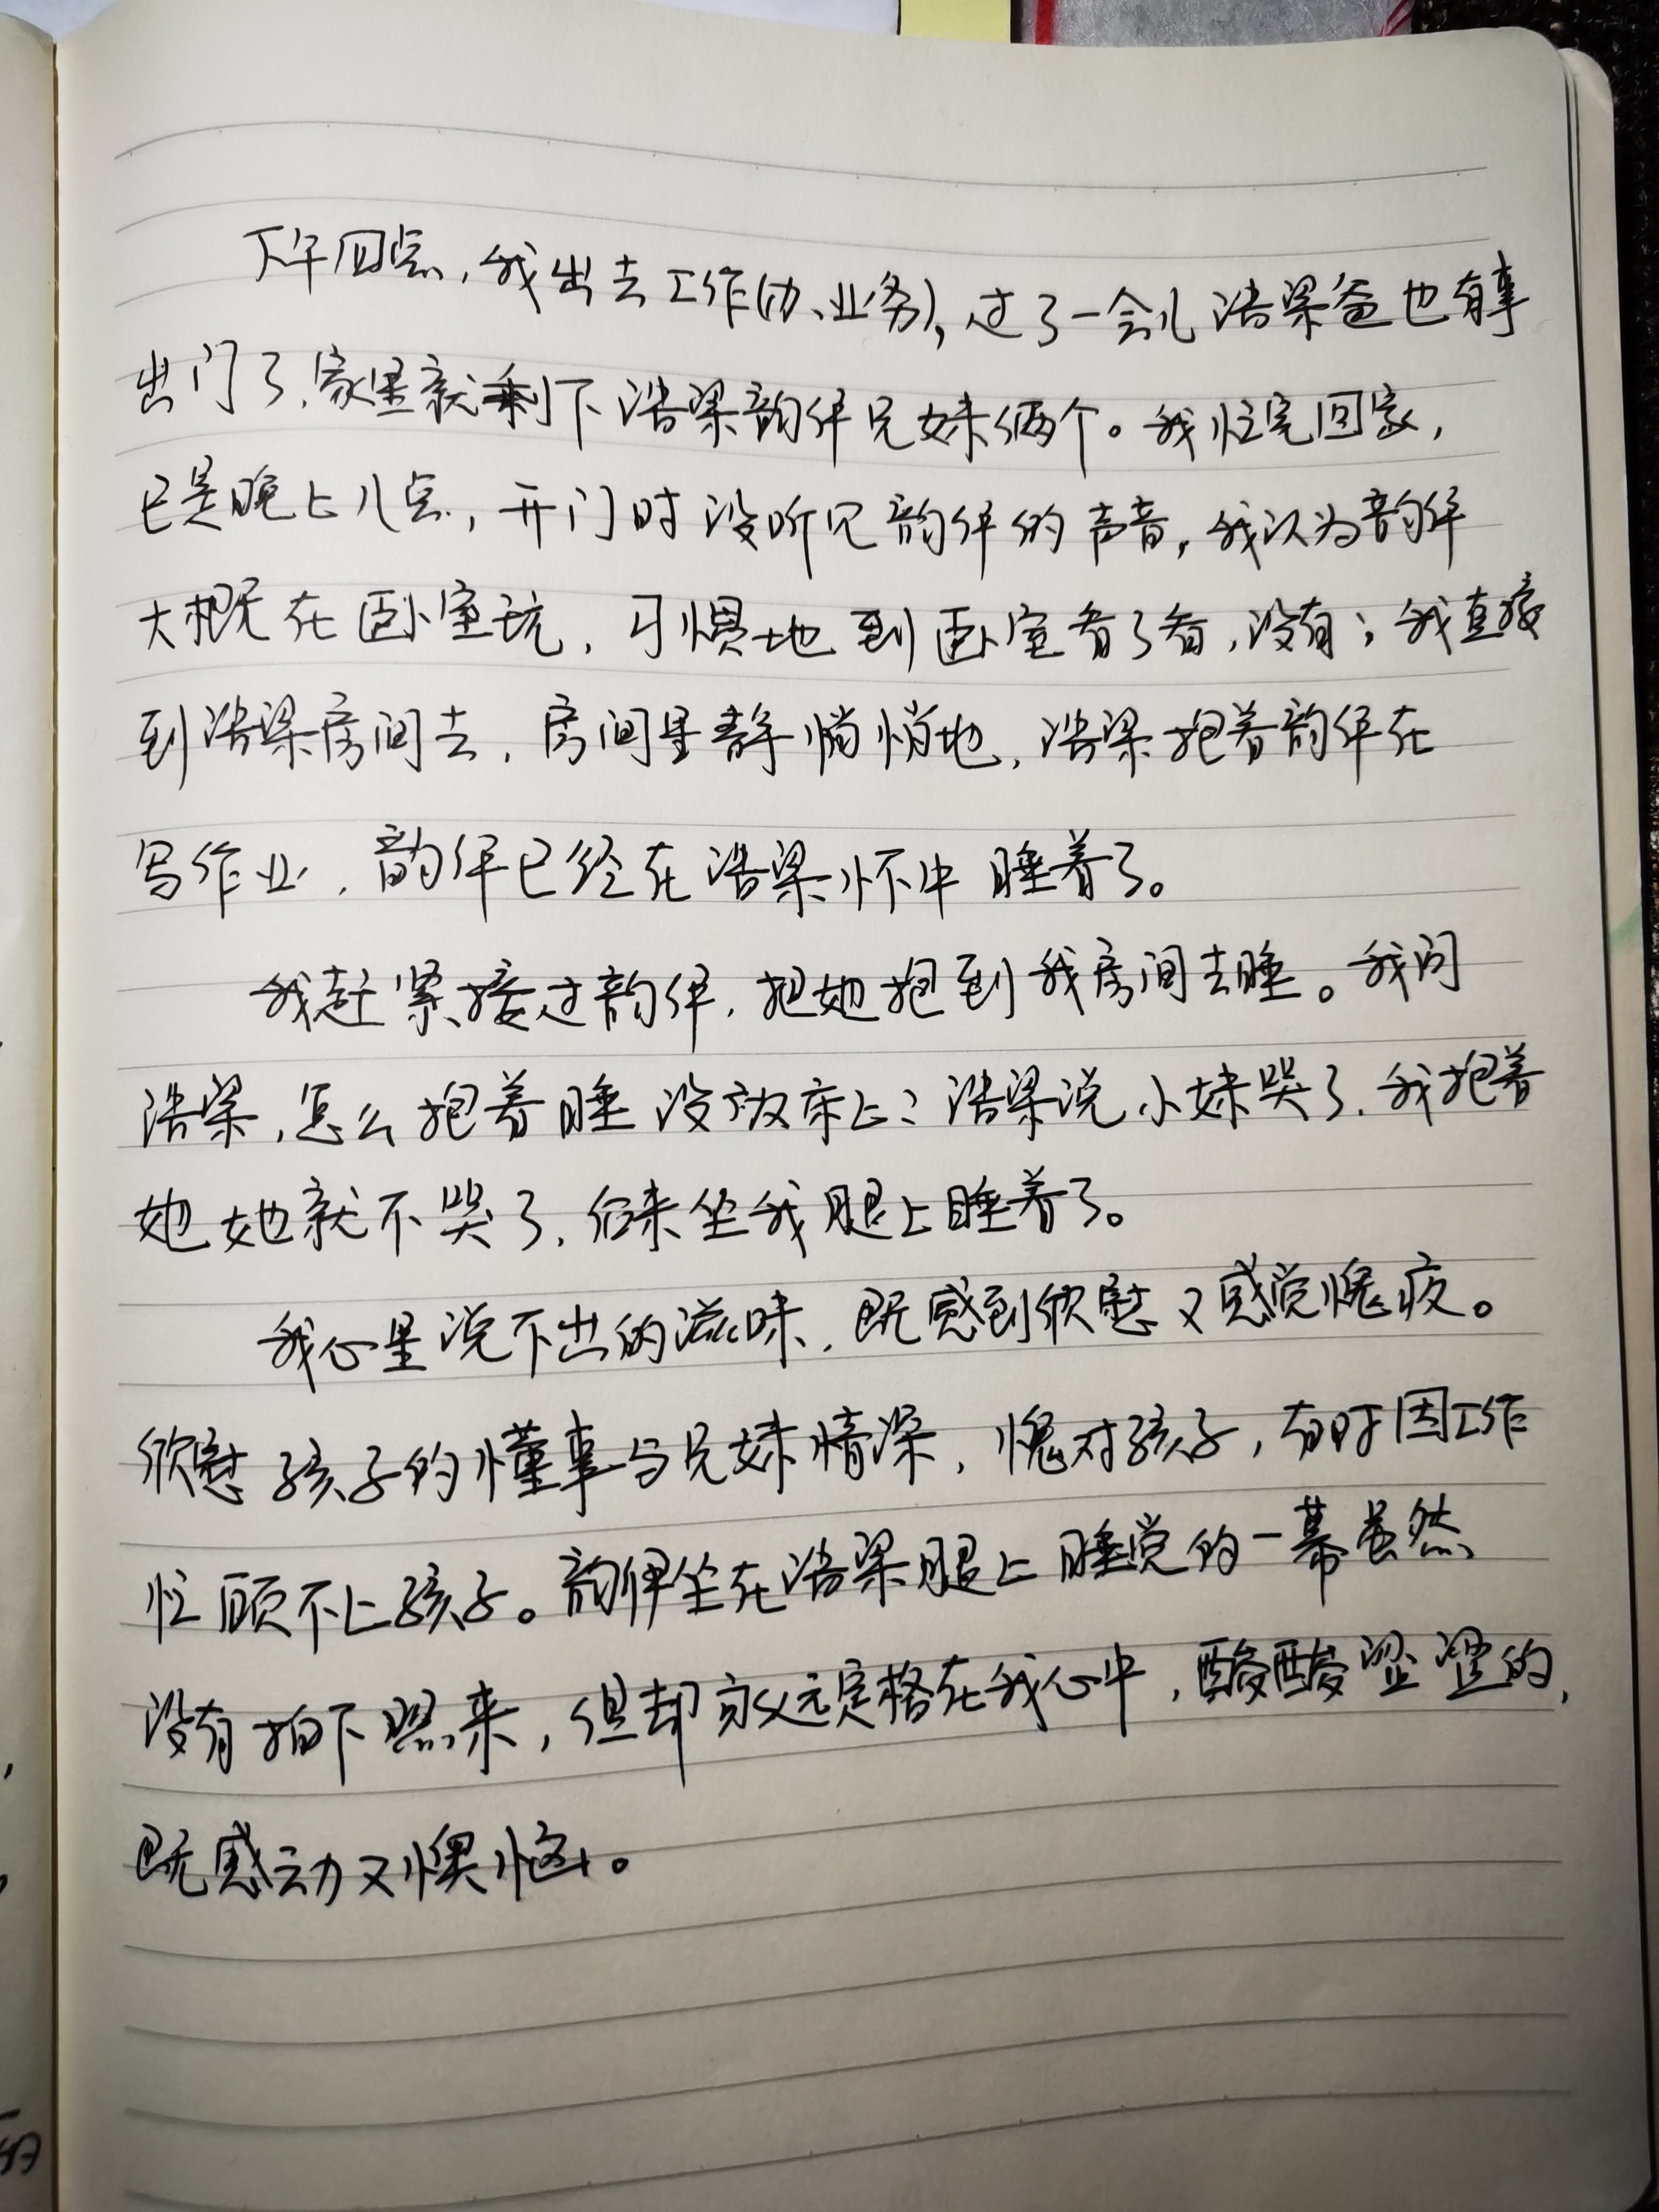 下午四点，我出去工作(办业务)，过了一会儿浩梁爸也有事
出门了，家里就剩下浩梁韵伊兄妹俩个。我忙完回家，
已是晚上八点，开门时没听见韵伊的声音，我认为韵伊
大概在卧室玩，习惯地到卧室看了看，没有；我直接
到浩梁房间去，房间里静悄悄地，浩梁抱着韵伊在
写作业，韵伊已经在浩梁怀中睡着了。
我赶紧接过韵伊，把她抱到我房间去睡。我问
浩梁，怎么抱着睡没放床上？浩梁说小妹哭了，我抱着
她她就不哭了，后来坐我腿上睡着了。
我心里说不出的滋味，既感到欣慰又感觉愧疚。
欣慰孩子的懂事与兄妹情深，愧对孩子，有时因工作
忙顾不上孩子。韵伊坐在浩梁腿上睡觉的一幕虽然
没有拍下照来，但却永远定格在我心中，酸酸涩涩的，
既感动又懊恼。